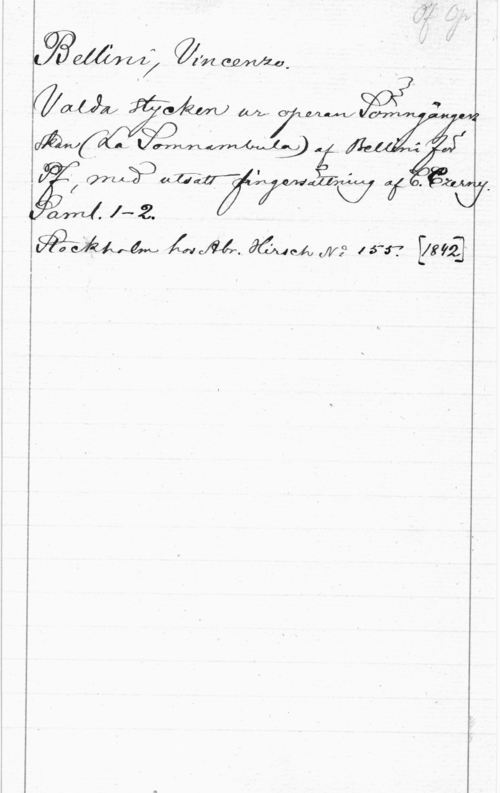 Of Op
Bellini, Vincenzo.
Valda Stycken ur operan Sömngånger
skan (La Somnambula) af Bellini för
Pf, med utsatt fingersättning af C. Czerny.
Saml. 1-2.
Stockholm hos Abr. Hirsch Nº 155. [1842]